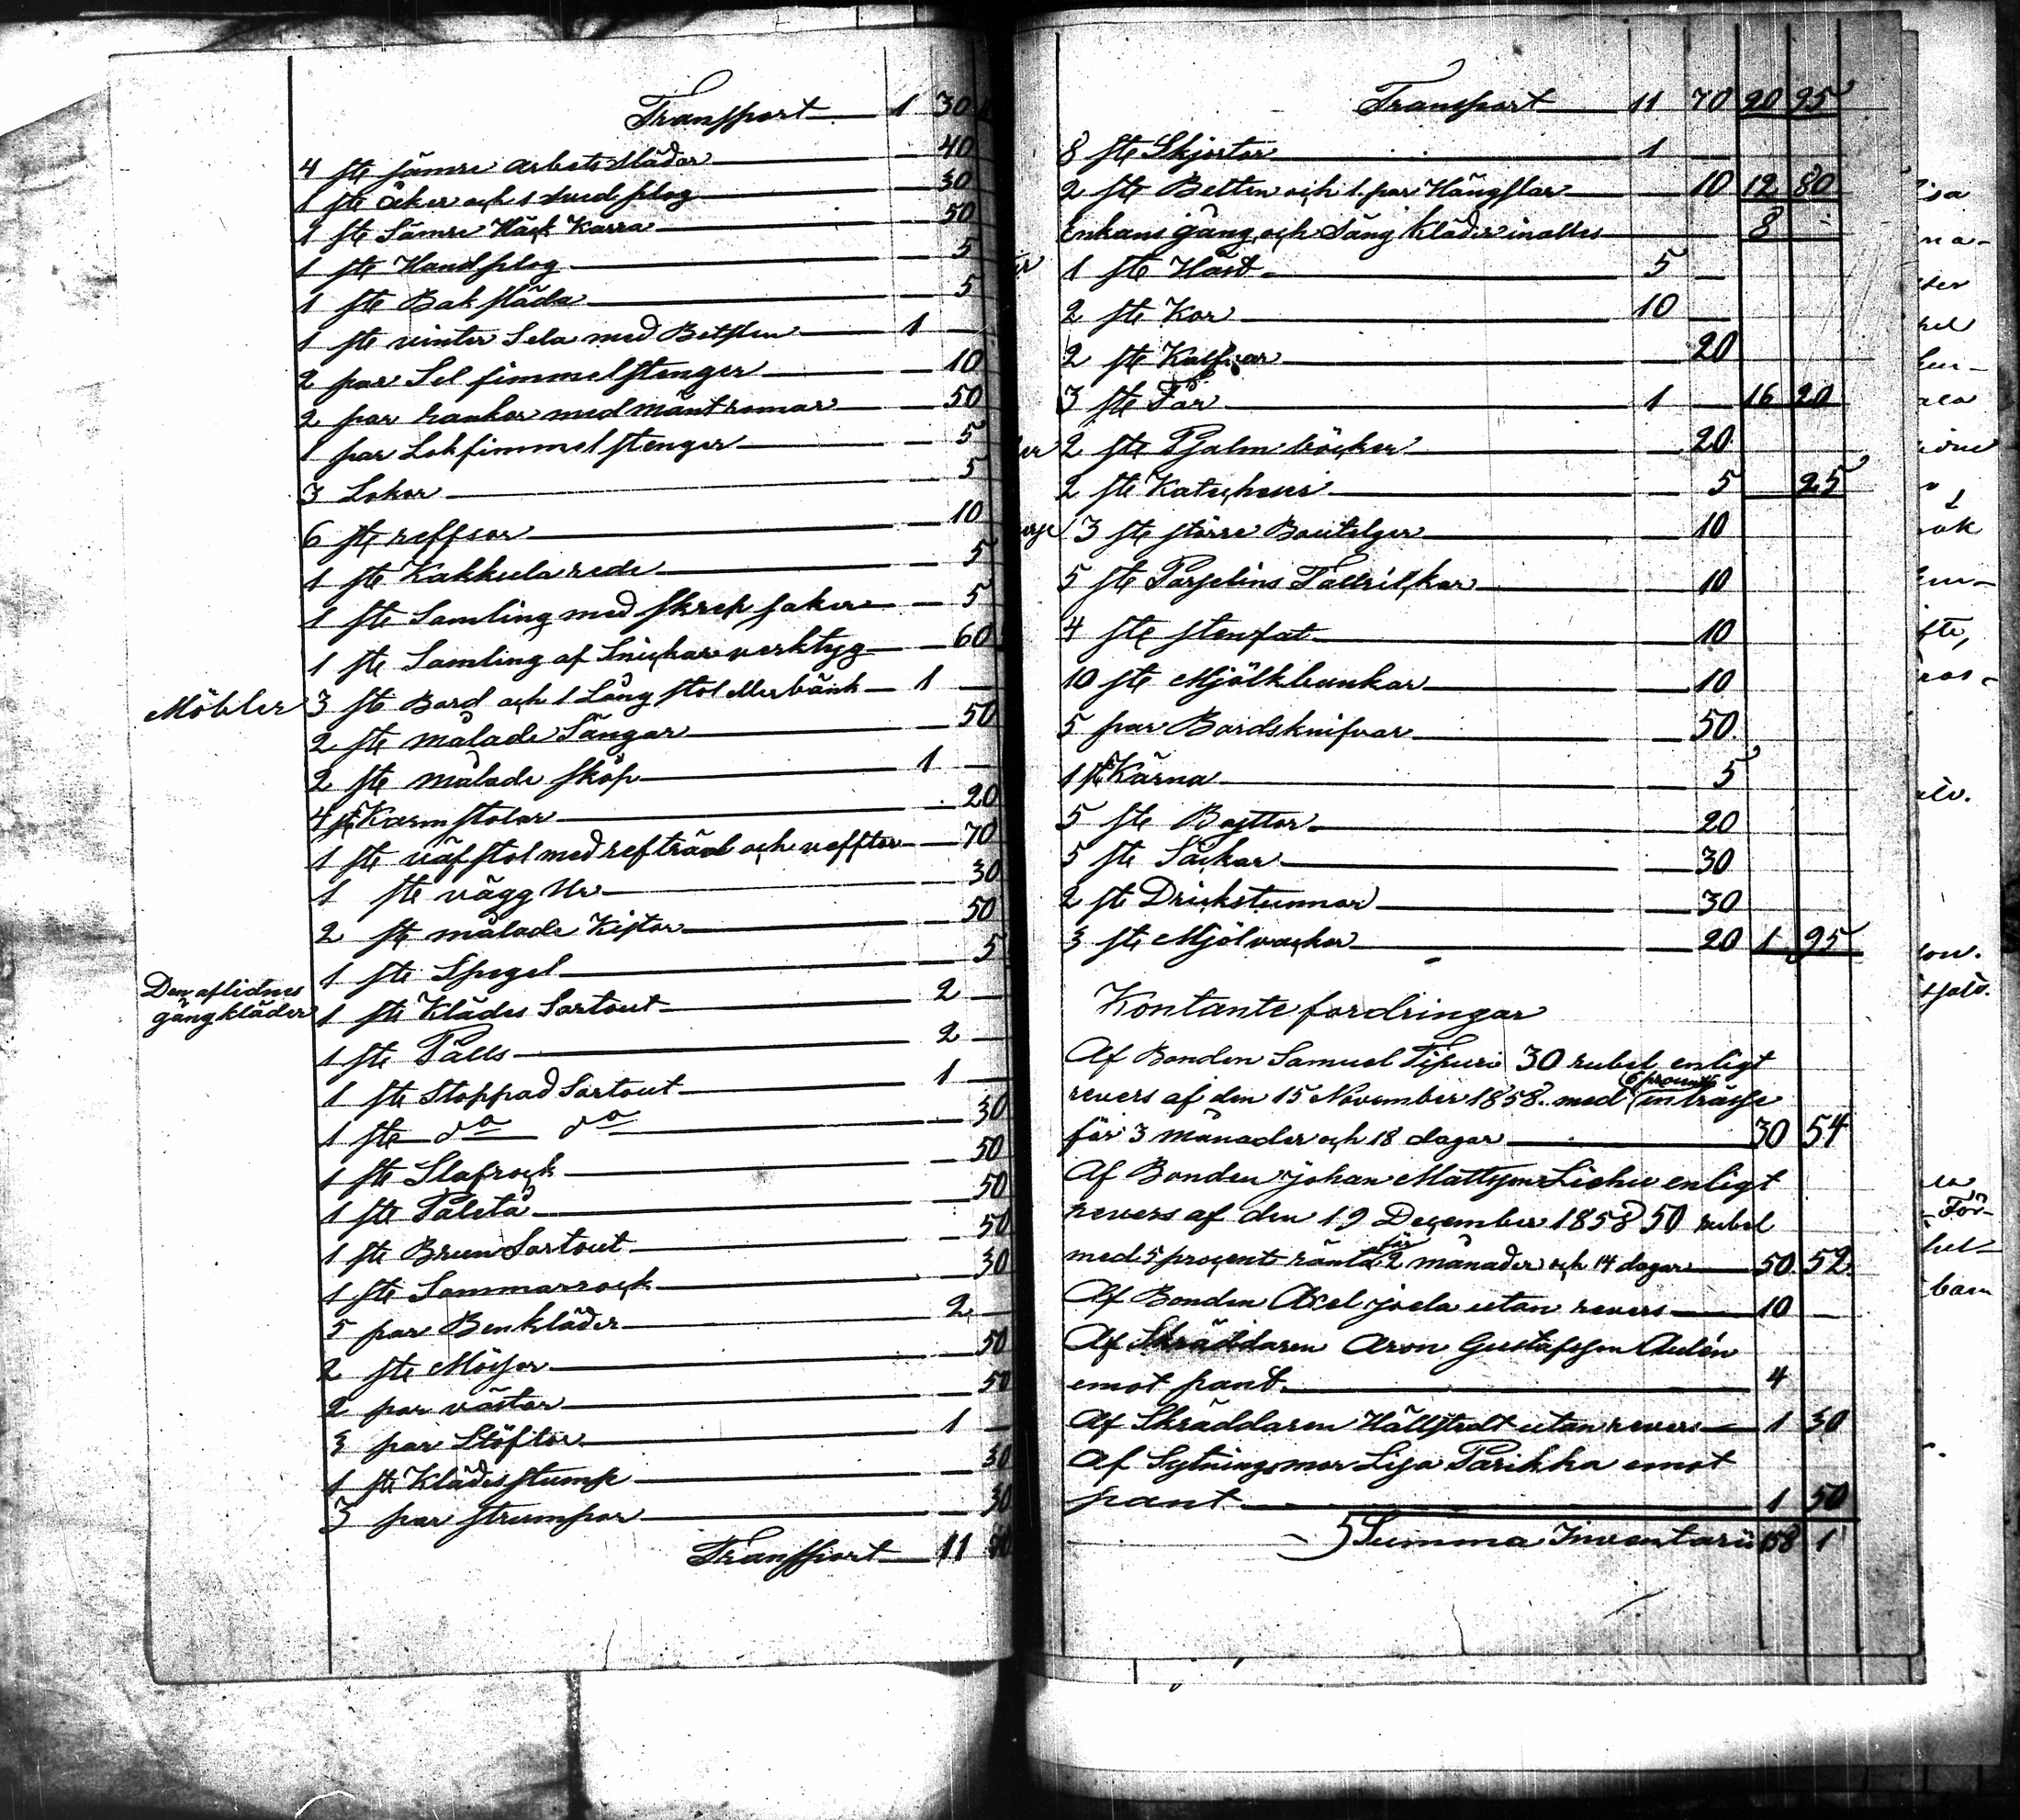 Transport 1 30
4 ste sämre arbets slädar 40
1 ste åker och 1 sved plog 30
1 ste Sämre Häck Karra 50
1 ste Handplog 5
1 ste Bak släda 5
1 ste vinter Sela med Betslen 1 —
2 par Sel fimmelstenger 10
2 par rankor med 50
1 par Lokfimmelstenger 5
3 Lokor 5
6 ste reffsor 10
1 ste Kakkula rede 5
1 ste Samling med skrep saker 5
1 ste Samling af Snickare verktyg 60
Möbler 3 ste Bord och 1 Lång stol eller bänk 1 —
2 ste målade Sängar 50
2 ste målade skåp 1 —
4 st Karmstolar 20
1 ste väfstol med refträd och vefftar 70
1 ste vägg Ur 30
2 ste målade Kistor 50
1 ste Spegel 5
Den aflidnes
gångkläder 1 ste Klädes Sortout 2 —
1 ste Pälls 2 —
1 ste Stoppad Sortout 1 —
1 ste do do 30
1 ste Slafrock 50
1 ste Paletå 50
1 ste Brun Sortout 50
1 ste Sommarrock 30
5 par Benkläder 2 —
2 ste Mössor 50
2 par västar 50
3 par Stöflor 1 —
1 ste Klädesstump 30
3 par strumpor 30
Transport 11 70
Transport 11 70 20 95
8 ste Skjortor 1 —
2 ste Belten och 1 par Hängslar 10 12 80
Enkans gång och Säng kläder inalles 8 -
1 ste Häst 5 —
2 ste Kor 10 —
2 ste Kalfvar 20
3 ste Får 1 — 16 20
2 ste Psalmböcker 20
2 ste Kateches 5 25
3 ste större Boutelger 10
5 ste Porselins Tallrikkar 10
4 ste stenfat 10
10 ste Mjölkbunkar 10
5 par Bordsknifvar 50
1 st Kärna 5
5 ste Byttor 20
5 ste Säckar 30
2 ste Drickstunnor 30
3 ste Mjölvackor 20 1 95
Kontante fordringar
Af Bonden Samuel Tipuri 30 rubel enligt
revers af den 15 November 1858. med 6 procents inträsse
för 3 månader och 18 dagar 30 54
Af Bonden Johan Mattsson Liehu enligt
revers af den 19 December 1858 50 rubel
med 5 procent ränta för 2 månader och 14 dagar 50. 52.
Af Bonden Axel Joela utan revers 10 —
Af Skräddaren Aron Gustafsson Aulén
emot pant 4
Af Skräddaren Hällstedt utan revers 1 30
Af Sytningsmor Lisa Parikka emot
pant 1 50
Summa Inventarii 158 1